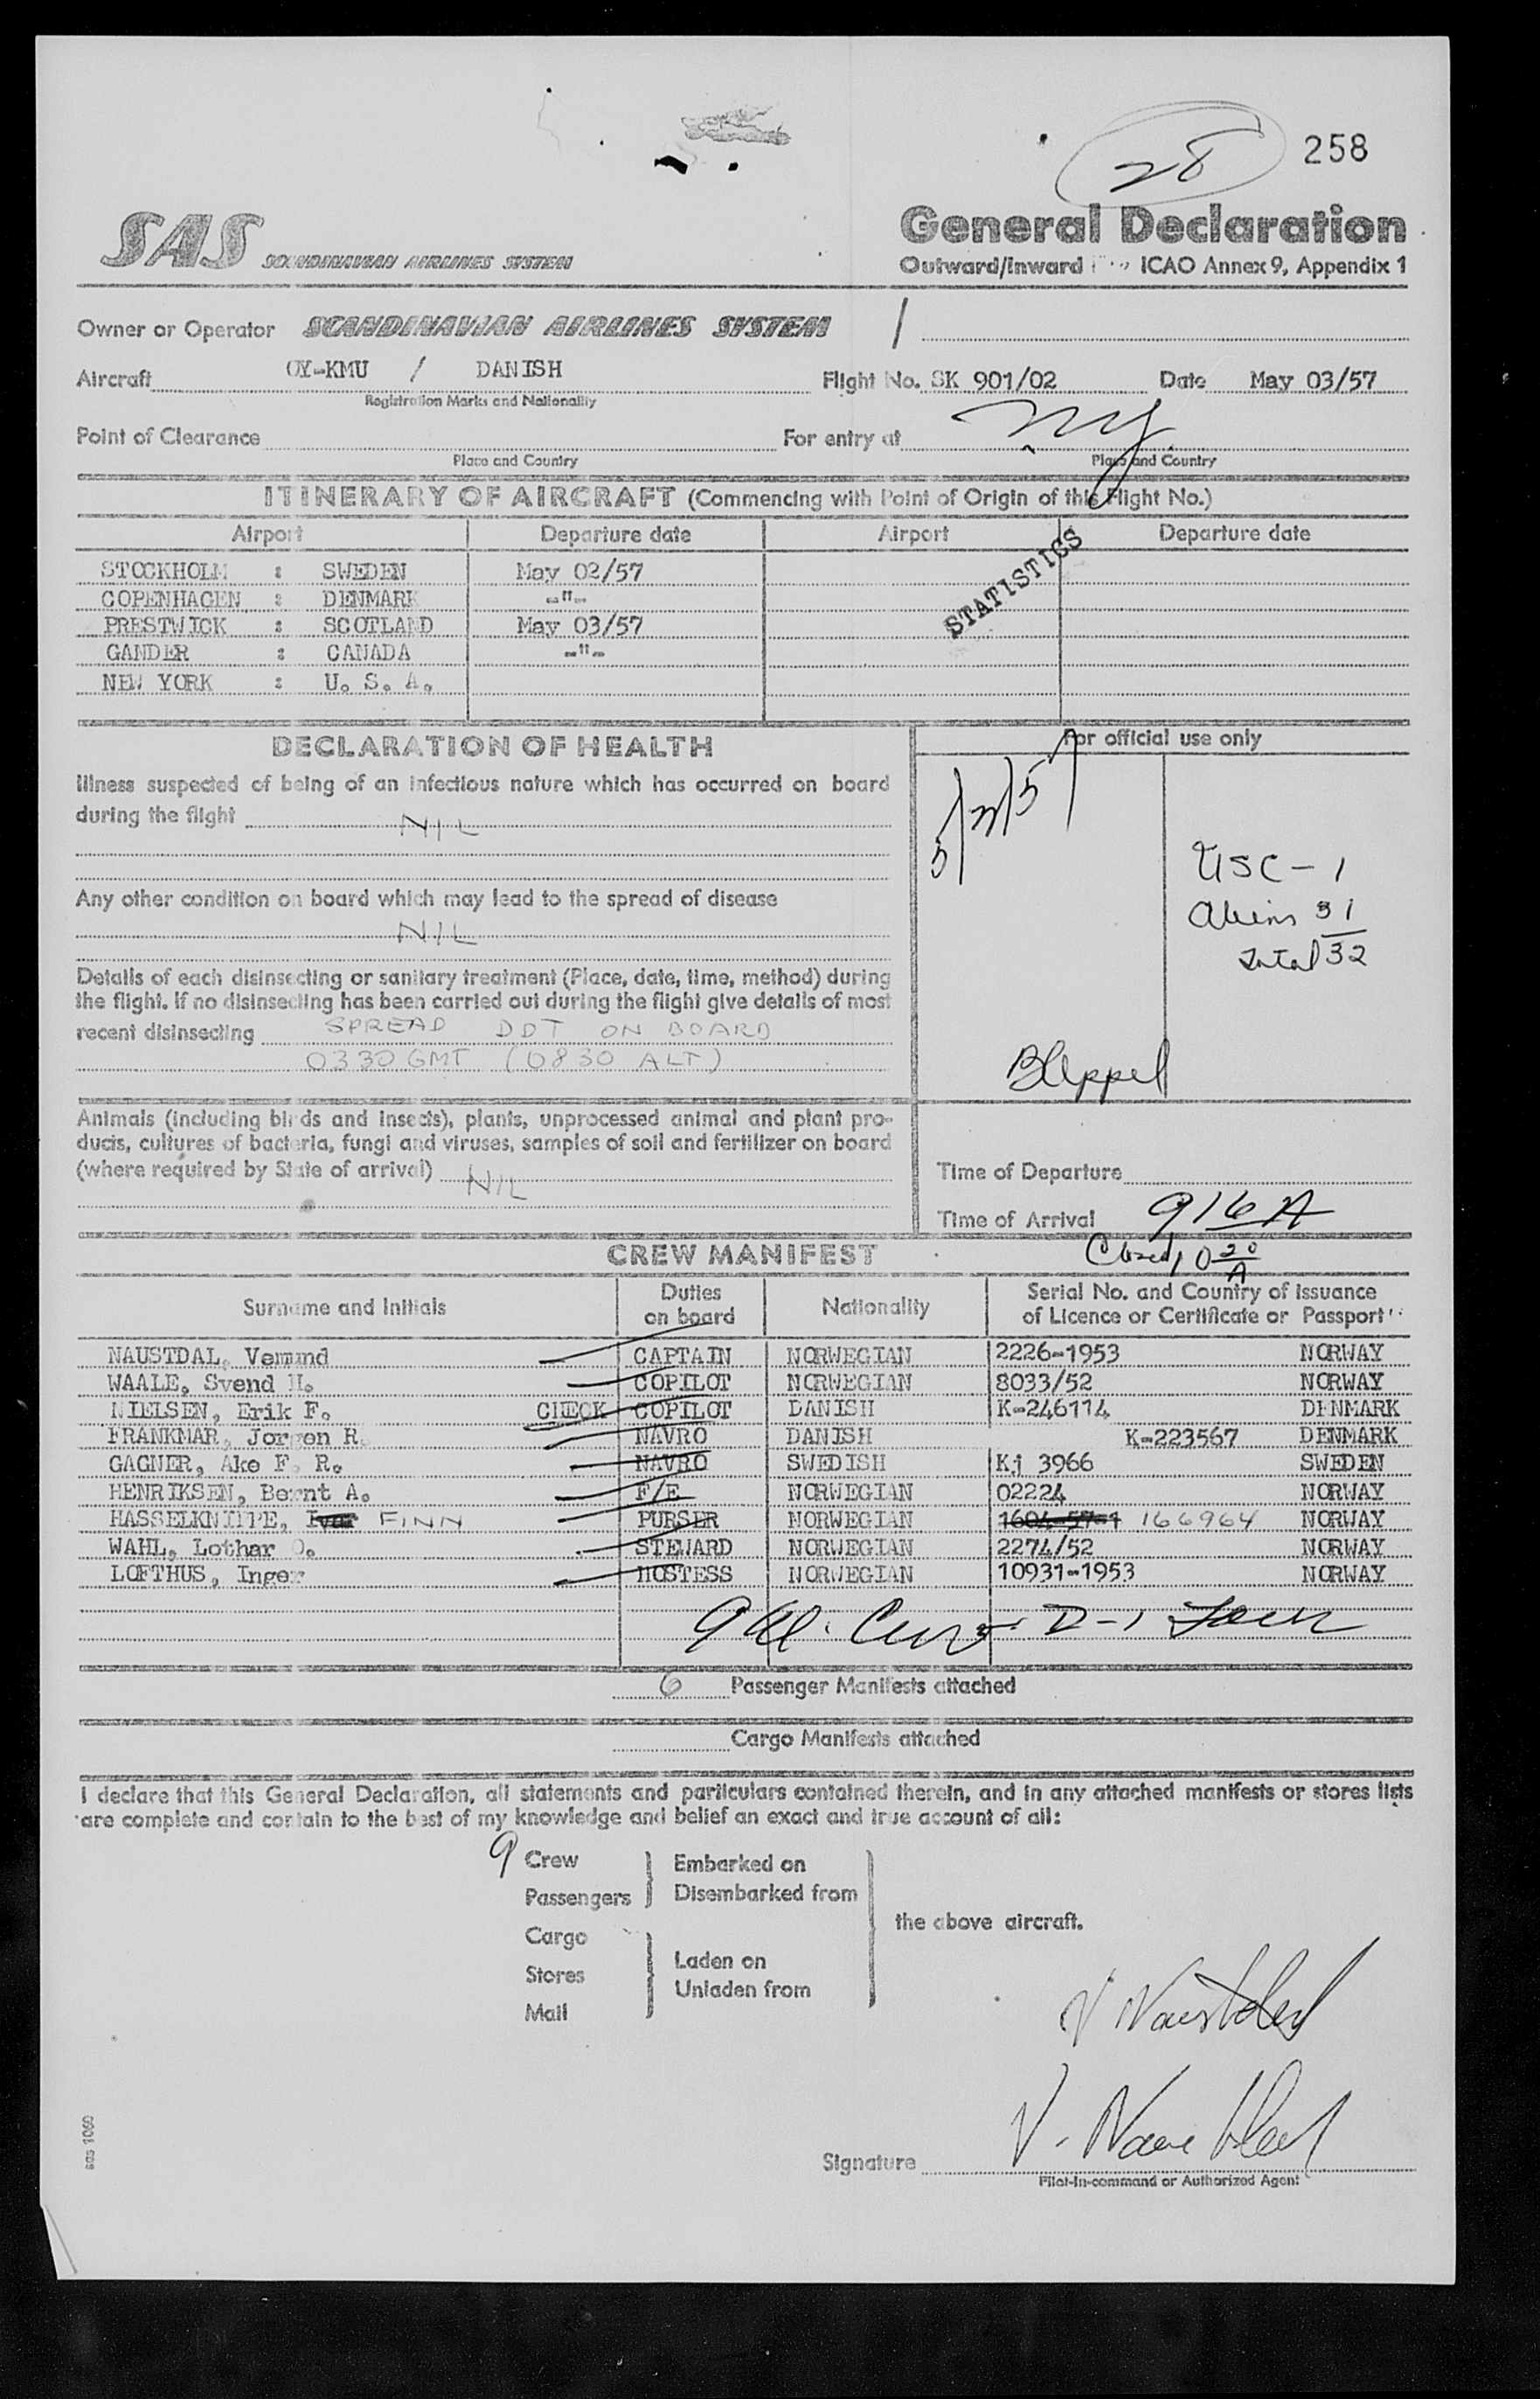 28 258
SAS SCANDINAVIAN AIRLINES SYSTEM
General Declaration
Outward/Inward ICAO Annex 9, Appendix 1
Owner or Operator SCANDINAVIAN AIRLINES SYSTEM /
Aircraft OY-KMU / DANISH Flight No. SK 901/02 Date May 03/57
Registration Marks and Nationality
Point of Clearance For entry at NY
Place and Country Place and Country
ITINERARY OF AIRCRAFT (Commencing with Point of Origin of this Flight No.)
Airport Departure date Airport Departure date
STATISTICS
STOCKHOLM : SWEDEN May 02/57
COPENHAGEN : DENMARK -"-
PRESTWICK : SCOTLAND May 03/57
GANDER : CANADA -"-
NEW YORK : U. S. A.
DECLARATION OF HEALTH
Illness suspected of being of an infectious nature which has occurred on board
during the flight NIL
Any other condition on board which may lead to the spread of disease
NIL
Details of each disinsecting or sanitary treatment (Place, date, time, method) during
the flight. If no disinsecting has been carried out during the flight give details of most
recent disinsecting SPREAD DDT ON BOARD
0330 GMT (0830 ALT)
Animals (including birds and insects), plants, unprocessed animal and plant pro-
ducts, cultures of bacteria, fungi and viruses, samples of soil and fertilizer on board
(where required by State of arrival) NIL
For official use only
5/3/57
USC - 1
Aliens 31
Total 32
Time of Departure
Time of Arrival 916 A
Closed 10 20 A
CREW MANIFEST
Surname and Initials Duties on board Nationality Serial No. and Country of Issuance of Licence or Certificate or Passport
NAUSTDAL, Vemund CAPTAIN NORWEGIAN 2226-1953 NORWAY
WAALE, Svend H. COPILOT NORWEGIAN 8033/52 NORWAY
NIELSEN, Erik F. CHECK COPILOT DANISH K-246114 DENMARK
FRANKMAR, Jorgen R. NAVRO DANISH K-223567 DENMARK
GAGNER, Ake F. R. NAVRO SWEDISH Kj 3966 SWEDEN
HENRIKSEN, Bernt A. F/E NORWEGIAN 02224 NORWAY
HASSELKNIPPE, Ivar FINN PURSER NORWEGIAN 1604-57-1 166964 NORWAY
WAHL, Lothar O. STEWARD NORWEGIAN 2274/52 NORWAY
LOFTHUS, Inger HOSTESS NORWEGIAN 10931-1953 NORWAY
D-1
6 Passenger Manifests attached
Cargo Manifests attached
I declare that this General Declaration, all statements and particulars contained therein, and in any attached manifests or stores lists
are complete and contain to the best of my knowledge and belief an exact and true account of all:
9 Crew
Passengers
Embarked on
Disembarked from
the above aircraft.
Cargo
Stores
Mail
Laden on
Unladen from
V Naustdal
V. Naustdal
Signature
Pilot-in-command or Authorized Agent
sas 1060